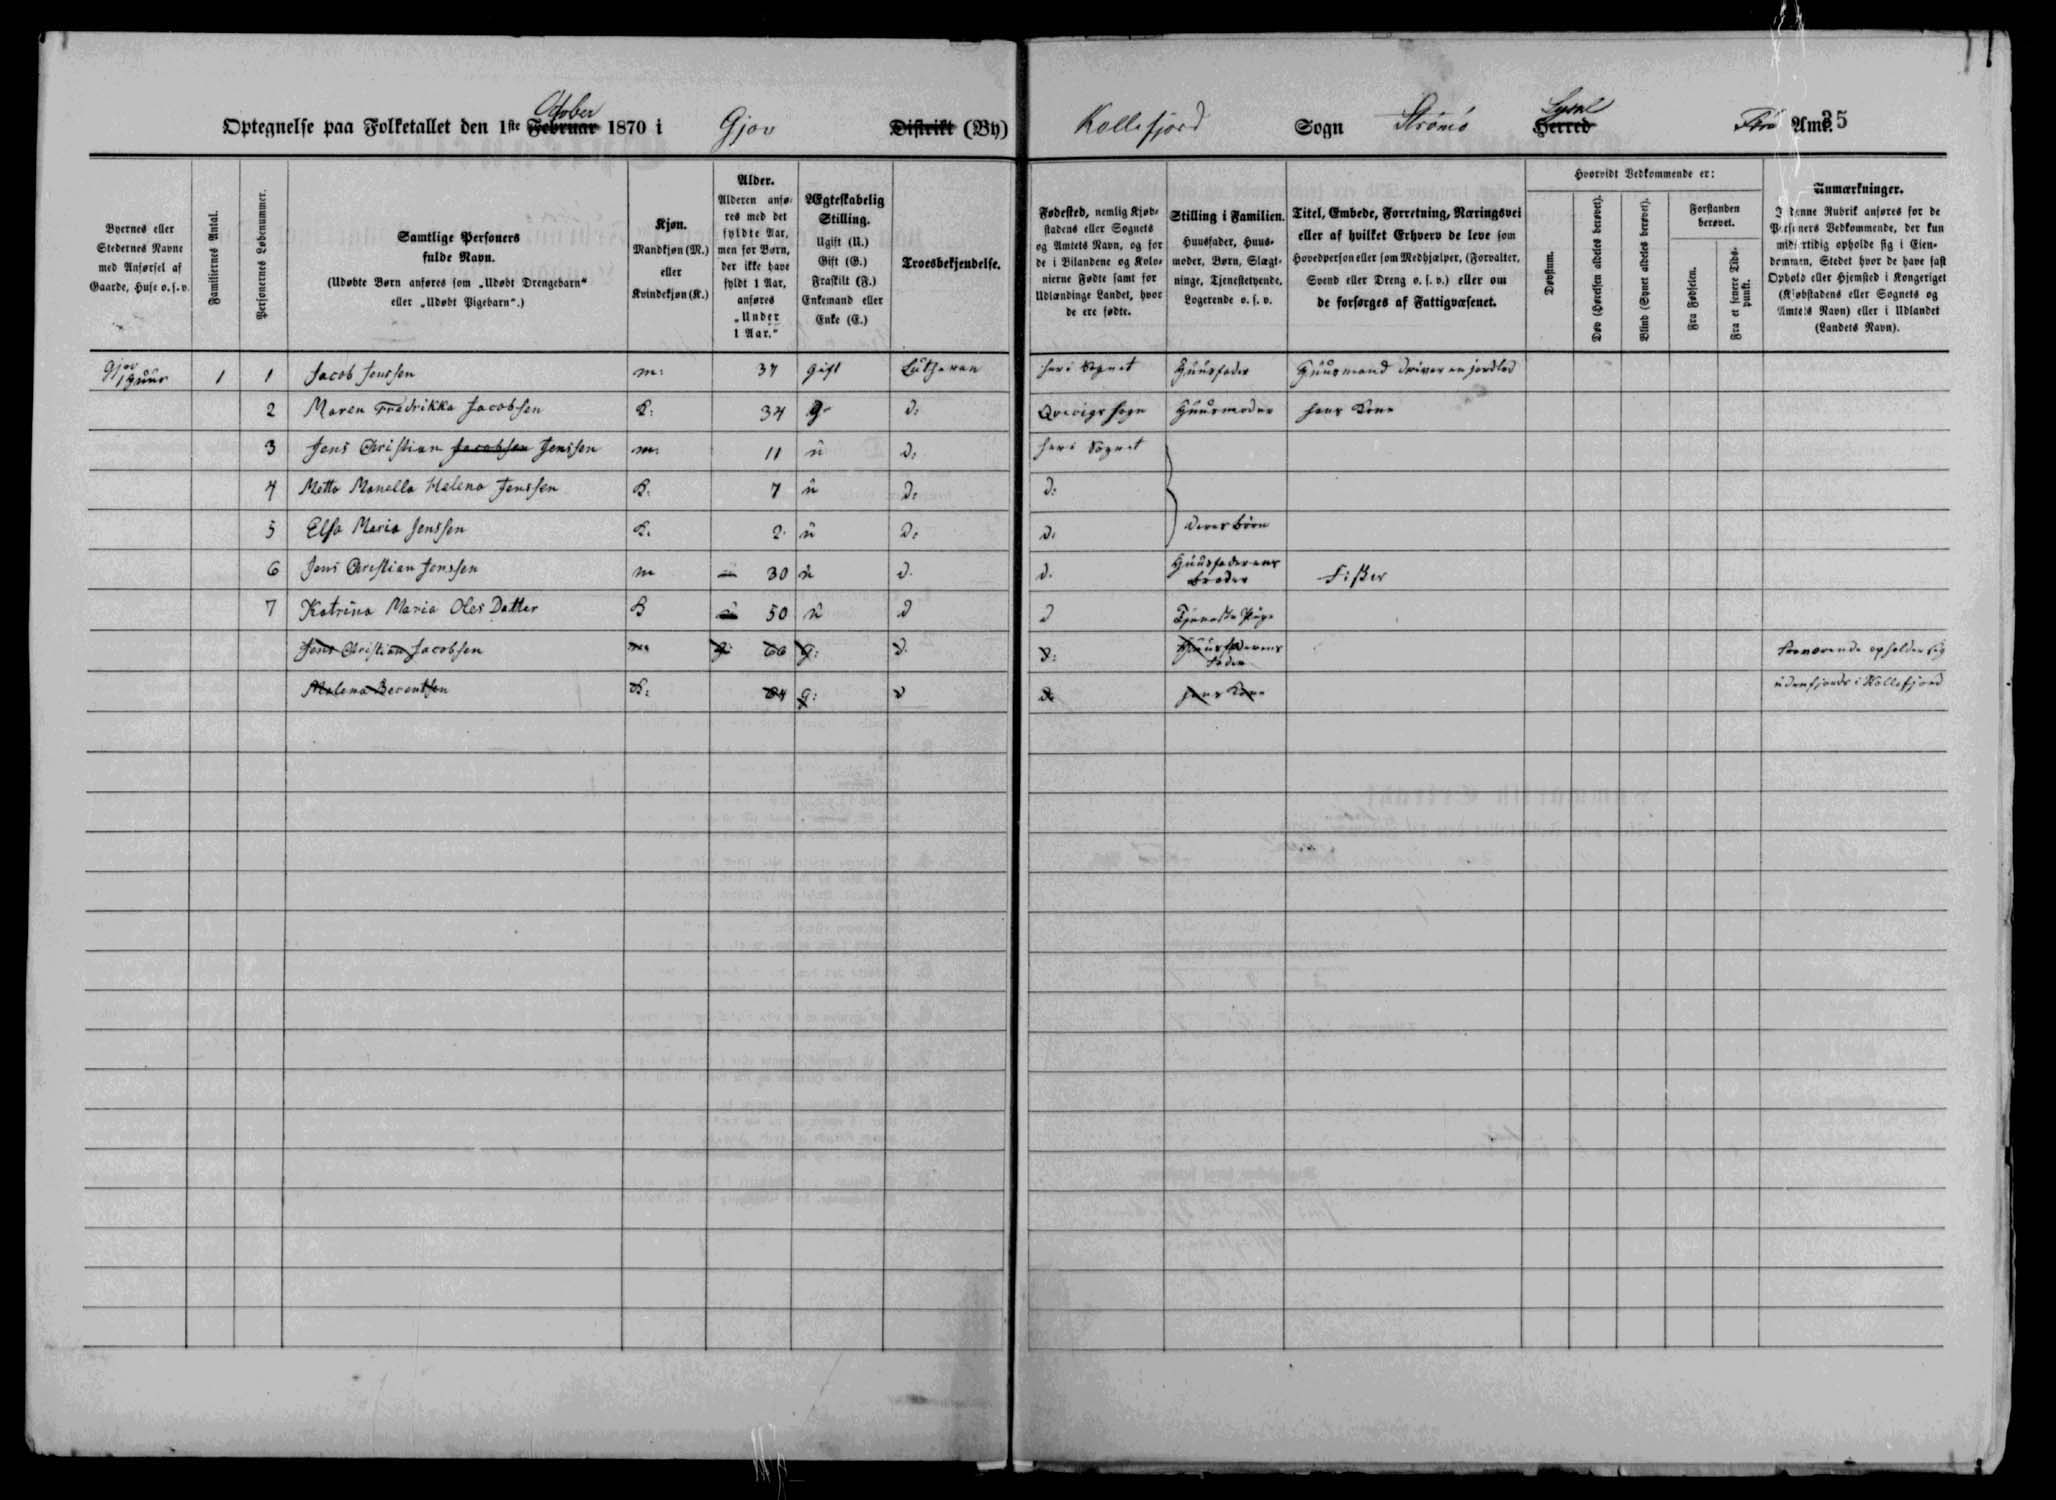 October
Optegnelse paa Folketallet den 1ste Februar 1870 i Gjov Distrikt (By) Kollefjord Sogn Strömö Herred Amt. 35
Sysel
Byernes eller Stedernes Navne med Anførsel af Gaarde, Huse o. s. v.
Familiernes Antal.
Personernes Løbenummer.
Samtlige Personers fulde Navn.
(Udøbte Børn anføres som „Udøbt Drengebarn“ eller „Udøbt Pigebarn“.)
Kjøn.
Mandkjøn (M.)
eller
Kvindekjøn (K.)
Alder.
Alderen anføres med det fyldte Aar, men for Børn, der ikke have fyldt 1 Aar, anføres „Under 1 Aar.“
Ægteskabelig Stilling.
Ugift (U.)
Gift (G.)
Fraskilt (F.)
Enkemand eller Enke (E.)
Troesbekjendelse.
Fødested, nemlig Kjøbstadens eller Sognets og Amtets Navn, og for de i Bilandene og Kolonierne Fødte samt for Udlændinge Landet, hvor de ere fødte.
Stilling i Familien.
Huusfader, Huusmoder, Børn, Slægtninge, Tjenestetyende, Logerende o. s. v.
Titel, Embede, Forretning, Næringsvei eller af hvilket Erhverv de leve som Hovedperson eller som Medhjælper, (Forvalter, Svend eller Dreng o. s. v.) eller om de forsørges af Fattigvæsenet.
Hvorvidt Vedkommende er:
Døvstum.
Døv (Hørelsen aldeles berøvet).
Blind (Synet aldeles berøvet).
Forstanden berøvet.
Fra Fødselen.
Fra et senere Tidspunkt.
Anmærkninger.
I denne Rubrik anføres for de Personers Vedkommende, der kun midlertidig opholde sig i Eiendommen, Stedet hvor de have fast Ophold eller Hjemsted i Kongeriget (Kjøbstadens eller Sognets og Amtets Navn) eller i Udlandet (Landets Navn).
Gjov
1 Huus 1 1 Jacob Jenssen m: 37 gift Lutheran her i Sognet Huusfader Huusmand driver en jordlod
2 Maren Fredrikka Jacobsen K: 34 g d: Qvivigs sogn Huusmoder hans Kone
3 Jens Christian Jacobsen Jenssen m: 11 u d: her i Sognet
4 Metta Manella Helena Jenssen K. 7 u d: d:
5 Elsa Maria Jenssen K. 2 u d: d: deres börn
6 Jens Christian Jenssen m 30 u d. d. Huusfaderens broder Fisker
7 Katrina Maria Oles Datter K 50 u d d Tjeneste Pige
Jens Christian Jacobsen m 66 g: d. d: Huusfaderens fader
Malena Berentsen K: 64 g: d d hans Kone
opholder sig
udenfjords i Kollefjord